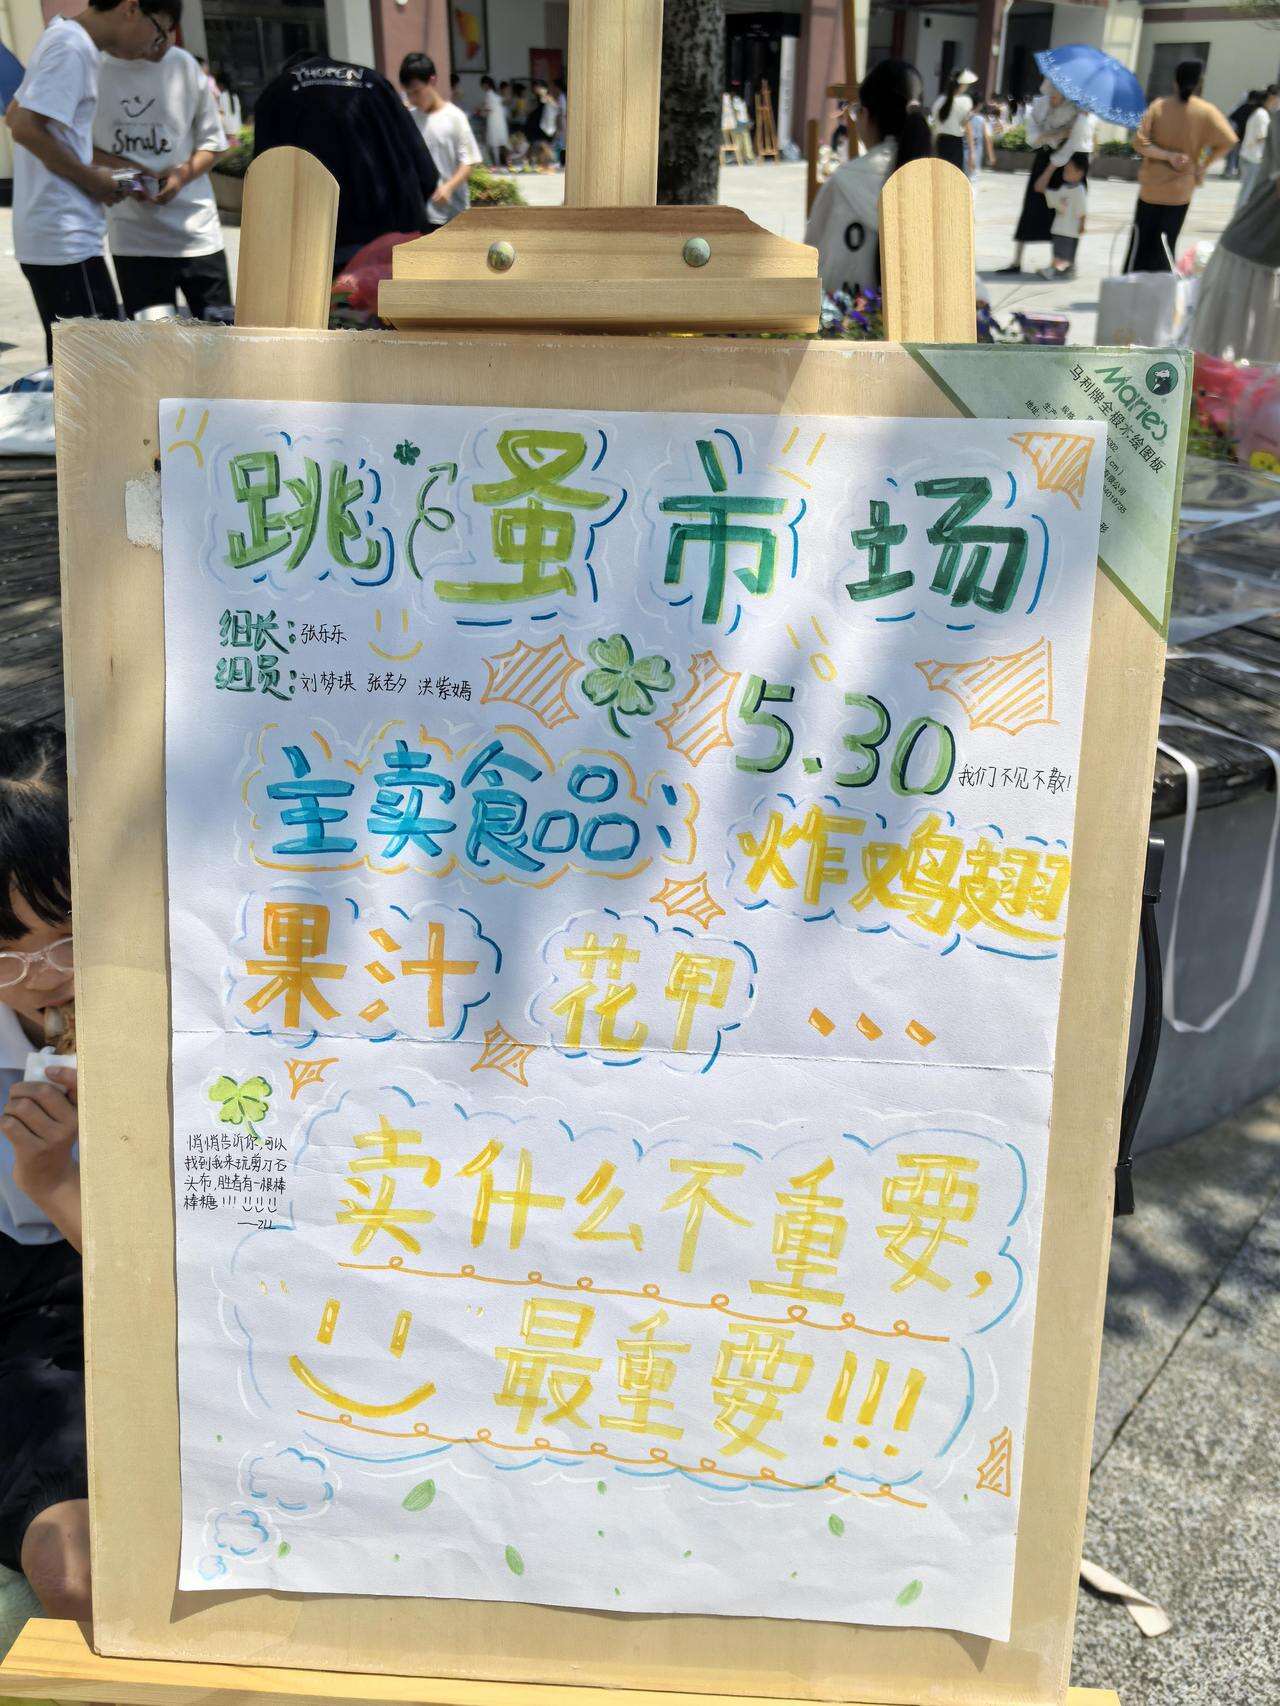 YHOPEN
Smile
Marie's
马利牌全椴木绘图板
跳蚤市场
组长：张乐乐
组员：刘梦琪 张若夕 洪紫嫣
5.30
我们不见不散！
主卖食品：
炸鸡翅
果汁 花甲 、、、
悄悄告诉你，可以
找到我来玩剪刀石
头布，胜者有一根棒
棒糖!!!
——ZLL
卖什么不重要，
" " 最重要!!!